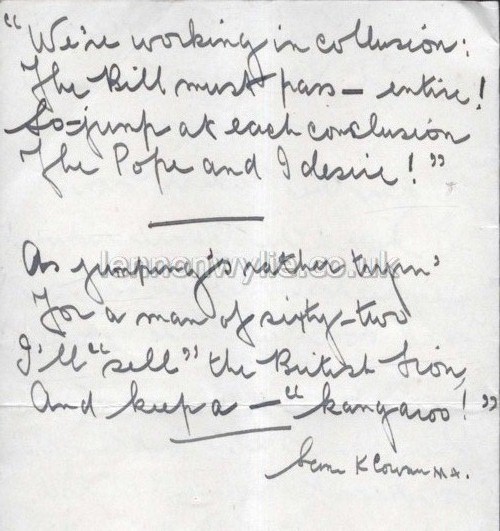 "We're working in collusion:
The Bill must pass — entire!
So — jump at each conclusion
The Pope and I desire!"
As jumping's rather tryin'
lennonwylie.co.uk
For a man of sixty-two
I'll "sell" the British Lion,
And keep a — "kangaroo!"
Sam K Cowan M.A.